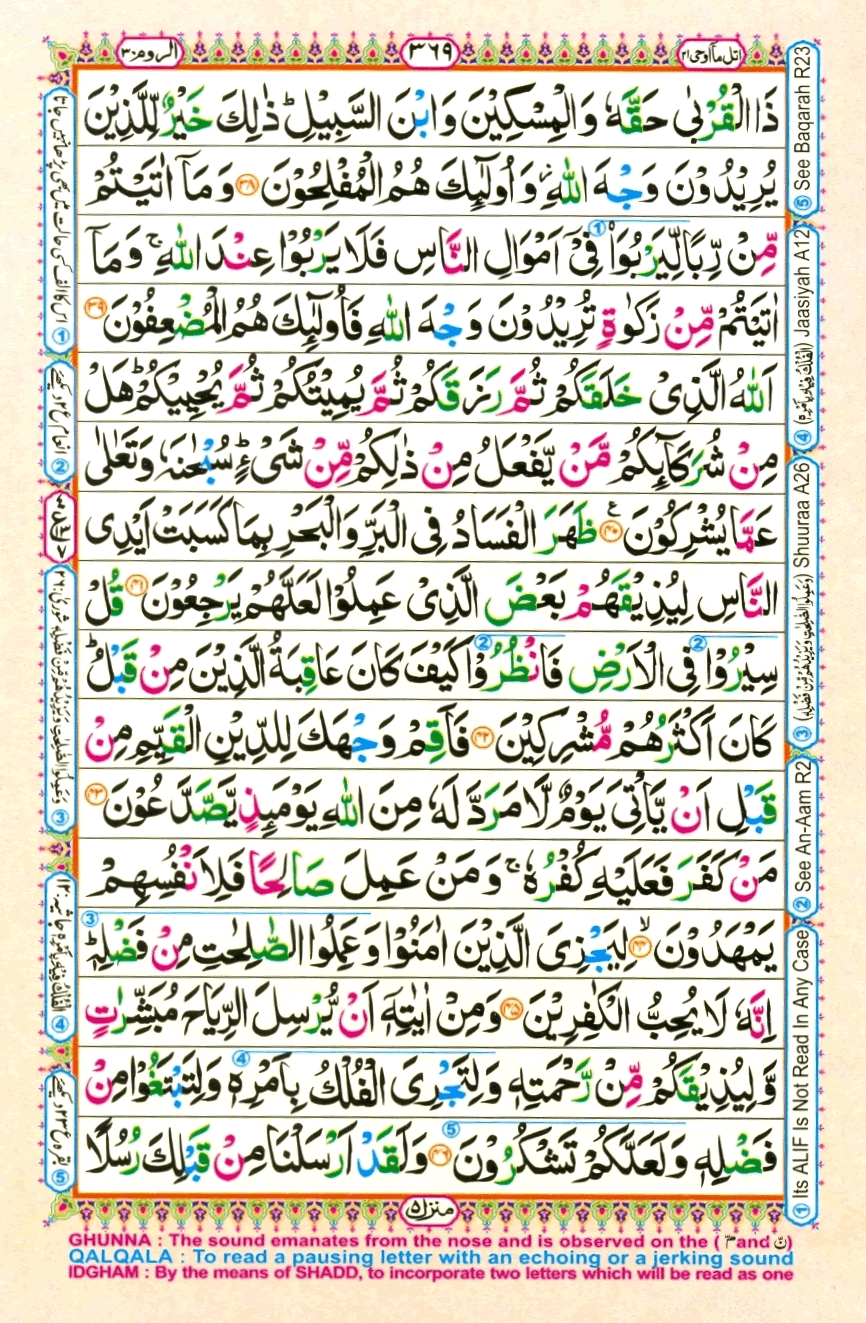 اتل مآ اوحی ۲۱
۳۶۹
الروم ۳۰
ذَا الْقُرْبٰى حَقَّهٗ وَالْمِسْكِيْنَ وَابْنَ السَّبِيْلِ ؕ ذٰلِكَ خَيْرٌ لِّلَّذِيْنَ
يُرِيْدُوْنَ وَجْهَ اللّٰهِ ؗ وَاُولٰٓئِكَ هُمُ الْمُفْلِحُوْنَ ۳۸ وَمَاۤ اٰتَيْتُمْ
مِّنْ رِّبًا لِّيَرْبُوَا۟ ① فِيْۤ اَمْوَالِ النَّاسِ فَلَا يَرْبُوْا عِنْدَ اللّٰهِ ۚ وَمَاۤ
اٰتَيْتُمْ مِّنْ زَكٰوةٍ تُرِيْدُوْنَ وَجْهَ اللّٰهِ فَاُولٰٓئِكَ هُمُ الْمُضْعِفُوْنَ ۳۹
اَللّٰهُ الَّذِيْ خَلَقَكُمْ ثُمَّ رَزَقَكُمْ ثُمَّ يُمِيْتُكُمْ ثُمَّ يُحْيِيْكُمْ ؕ هَلْ
مِنْ شُرَكَآئِكُمْ مَّنْ يَّفْعَلُ مِنْ ذٰلِكُمْ مِّنْ شَيْءٍ ؕ سُبْحٰنَهٗ وَتَعٰلٰى
عَمَّا يُشْرِكُوْنَ ۴۰ ع ظَهَرَ الْفَسَادُ فِى الْبَرِّ وَالْبَحْرِ بِمَا كَسَبَتْ اَيْدِى
النَّاسِ لِيُذِيْقَهُمْ بَعْضَ الَّذِيْ عَمِلُوْا لَعَلَّهُمْ يَرْجِعُوْنَ ۴۱ قُلْ
سِيْرُوْا ② فِى الْاَرْضِ فَانْظُرُوْا ② كَيْفَ كَانَ عَاقِبَةُ الَّذِيْنَ مِنْ قَبْلُ ؕ
كَانَ اَكْثَرُهُمْ مُّشْرِكِيْنَ ۴۲ فَاَقِمْ وَجْهَكَ لِلدِّيْنِ الْقَيِّمِ مِنْ
قَبْلِ اَنْ يَّاْتِيَ يَوْمٌ لَّا مَرَدَّ لَهٗ مِنَ اللّٰهِ يَوْمَئِذٍ يَّصَّدَّعُوْنَ ۴۳
مَنْ كَفَرَ فَعَلَيْهِ كُفْرُهٗ ۚ وَمَنْ عَمِلَ صَالِحًا فَلِاَنْفُسِهِمْ
يَمْهَدُوْنَ ۙ ۴۴ لِيَجْزِيَ الَّذِيْنَ اٰمَنُوْا وَعَمِلُوا الصّٰلِحٰتِ مِنْ فَضْلِهٖ ؕ ③
اِنَّهٗ لَا يُحِبُّ الْكٰفِرِيْنَ ۴۵ وَمِنْ اٰيٰتِهٖۤ اَنْ يُّرْسِلَ الرِّيَاحَ مُبَشِّرٰتٍ
وَّلِيُذِيْقَكُمْ مِّنْ رَّحْمَتِهٖ وَلِتَجْرِيَ الْفُلْكُ بِاَمْرِهٖ ④ وَلِتَبْتَغُوْا مِنْ
فَضْلِهٖ وَلَعَلَّكُمْ تَشْكُرُوْنَ ⑤ ۴۶ وَلَقَدْ اَرْسَلْنَا مِنْ قَبْلِكَ رُسُلًا
منزل ۵
⑤ See Baqarah R23
④ (الْفُلْكُ فِيْهِ بِاَمْرِهٖ) Jaasiyah A12
③ (وَعَمِلُوا الصّٰلِحٰتِ وَيَزِيْدُهُمْ مِّنْ فَضْلِهٖ) Shuuraa A26
② See An-Aam R2
① Its ALIF Is Not Read In Any Case
① اس کا الف کسی حالت میں بھی پڑھا نہیں جاتا
② انعام ع ۲ دیکھئے
③ وَعَمِلُوا الصّٰلِحٰتِ وَيَزِيْدُهُمْ مِّنْ فَضْلِهٖ شورٰی: ۲۶
④ الْفُلْكُ فِيْهِ بِاَمْرِهٖ جاثیہ: ۱۲
⑤ بقرہ ع ۲۳ دیکھئے
GHUNNA : The sound emanates from the nose and is observed on the ( مّ and نّ )
QALQALA : To read a pausing letter with an echoing or a jerking sound
IDGHAM : By the means of SHADD, to incorporate two letters which will be read as one